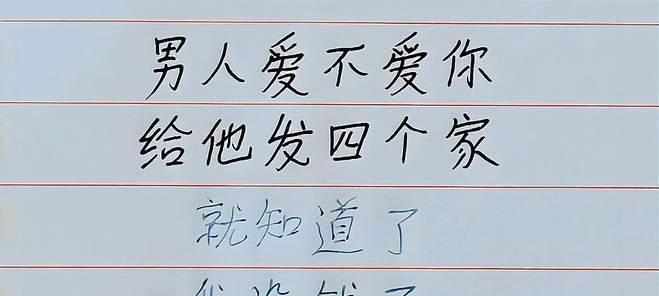 男人爱不爱你
给他发四个家
就知道了